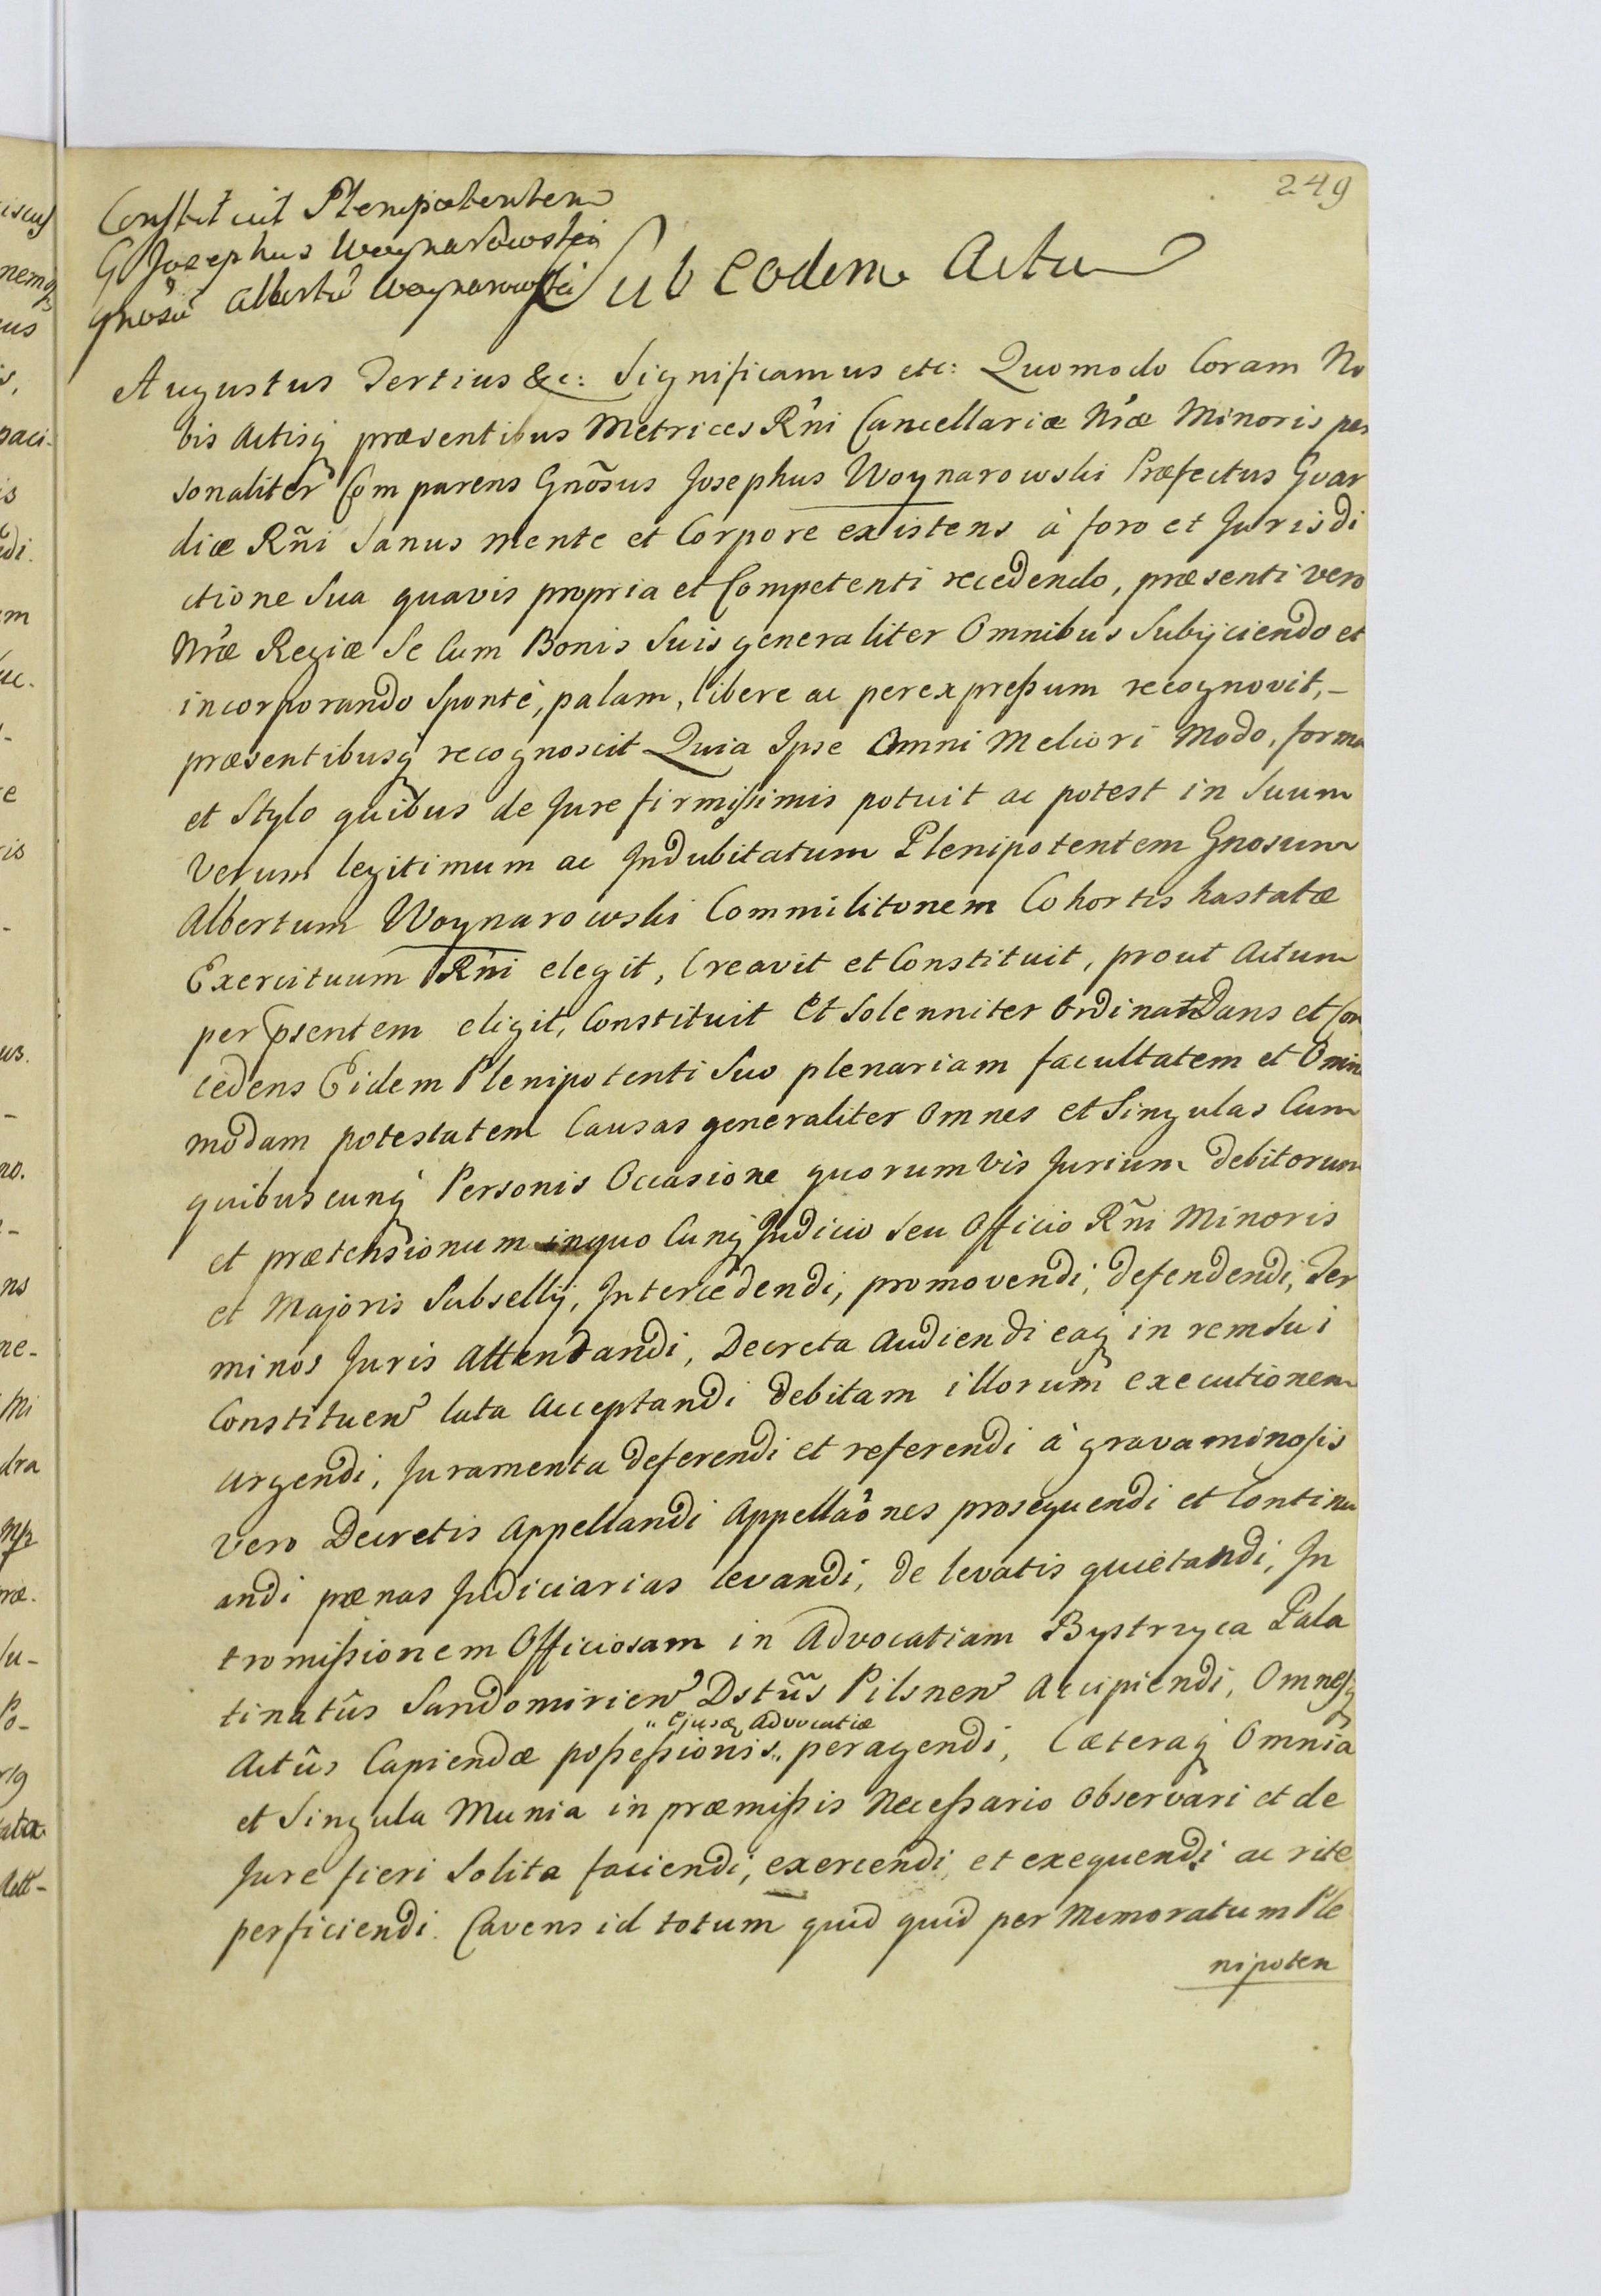 249
Constituit Plenipotentem
G Josephus Woynarowski
Gnosũ Albertũ Woynarowski
Sub eodem Actu
Augustus Tertius &c: Significamus etc: Quomodo Coram No
bis Actisq̃ præsentibus Metrices Rñi Cancellariæ Nræ Minoris per
sonaliter Comparens Gnõsus Josephus Woynarowski Præfectus Gvar
diæ Rñi Sanus mente et Corpore existens à foro et Jurisdi
ctione Sua quavis propria et Competenti recedendo, præsenti vero
Nræ Regiæ Se Cum Bonis Suis generaliter Omnibus Subijciendo et
incorporando Spontè, palam, libere ac per expreßum recognovit, –
præsentibusq̃ recognoscit Quia Ipse Omni Meliori Modo, forma
et Stylo quibus de Jure firmißimis potuit ac potest in Suum
Verum legitimum ac Indubitatum Plenipotentem Gnosum
Albertum Woynarowski Commilitonem Cohortis hastatæ
Exercituum Rñi elegit, Creavit et Constituit, prout Actum
per p̃sentem eligit, Constituit et Solenniter Ordinat Dans et Con
cedens Eidem Plenipotenti Suo plenariam facultatem et Omni
modam potestatem Causas generaliter Omnes et Singulas Cum
quibuscunq̃ Personis Occasione quorumvis Jurium debitorum
et prætensionum inquo Cunq̃ Judicio Seu Officio Rñi Minoris
et Majoris Subsellij, Intercedendi, promovendi, defendendi, Ter
minos Juris Attentandi, Decreta Audiendi eaq̃ in rem Sui
Constituen̄ lata Acceptandi debitam illorum executionem
urgendi, Juramenta deferendi et referendi à gravaminosis
vero Decretis Appellandi Appellaõnes prosequendi et Continu
andi pænas Judiciarias levandi, de levatis quietandi, In
tromißionem Officiosam in Advocatiam Bystrzyca Pala
tinatûs Sandomirien̄ Dstũs Pilsnen̄ Accipiendi, Omnesq̃
„ejusdẽ Advocatiæ
Actûs Capiendæ poßeßionis„ peragendi, Cæteraq̃ Omnia
et Singula Munia in præmißis Neceßario Observari et de
Jure fieri Solita faciendi, exercendi, et exequendi ac rite
perficiendi. Cavens id totum quid quid per Memoratum Ple
nipoten